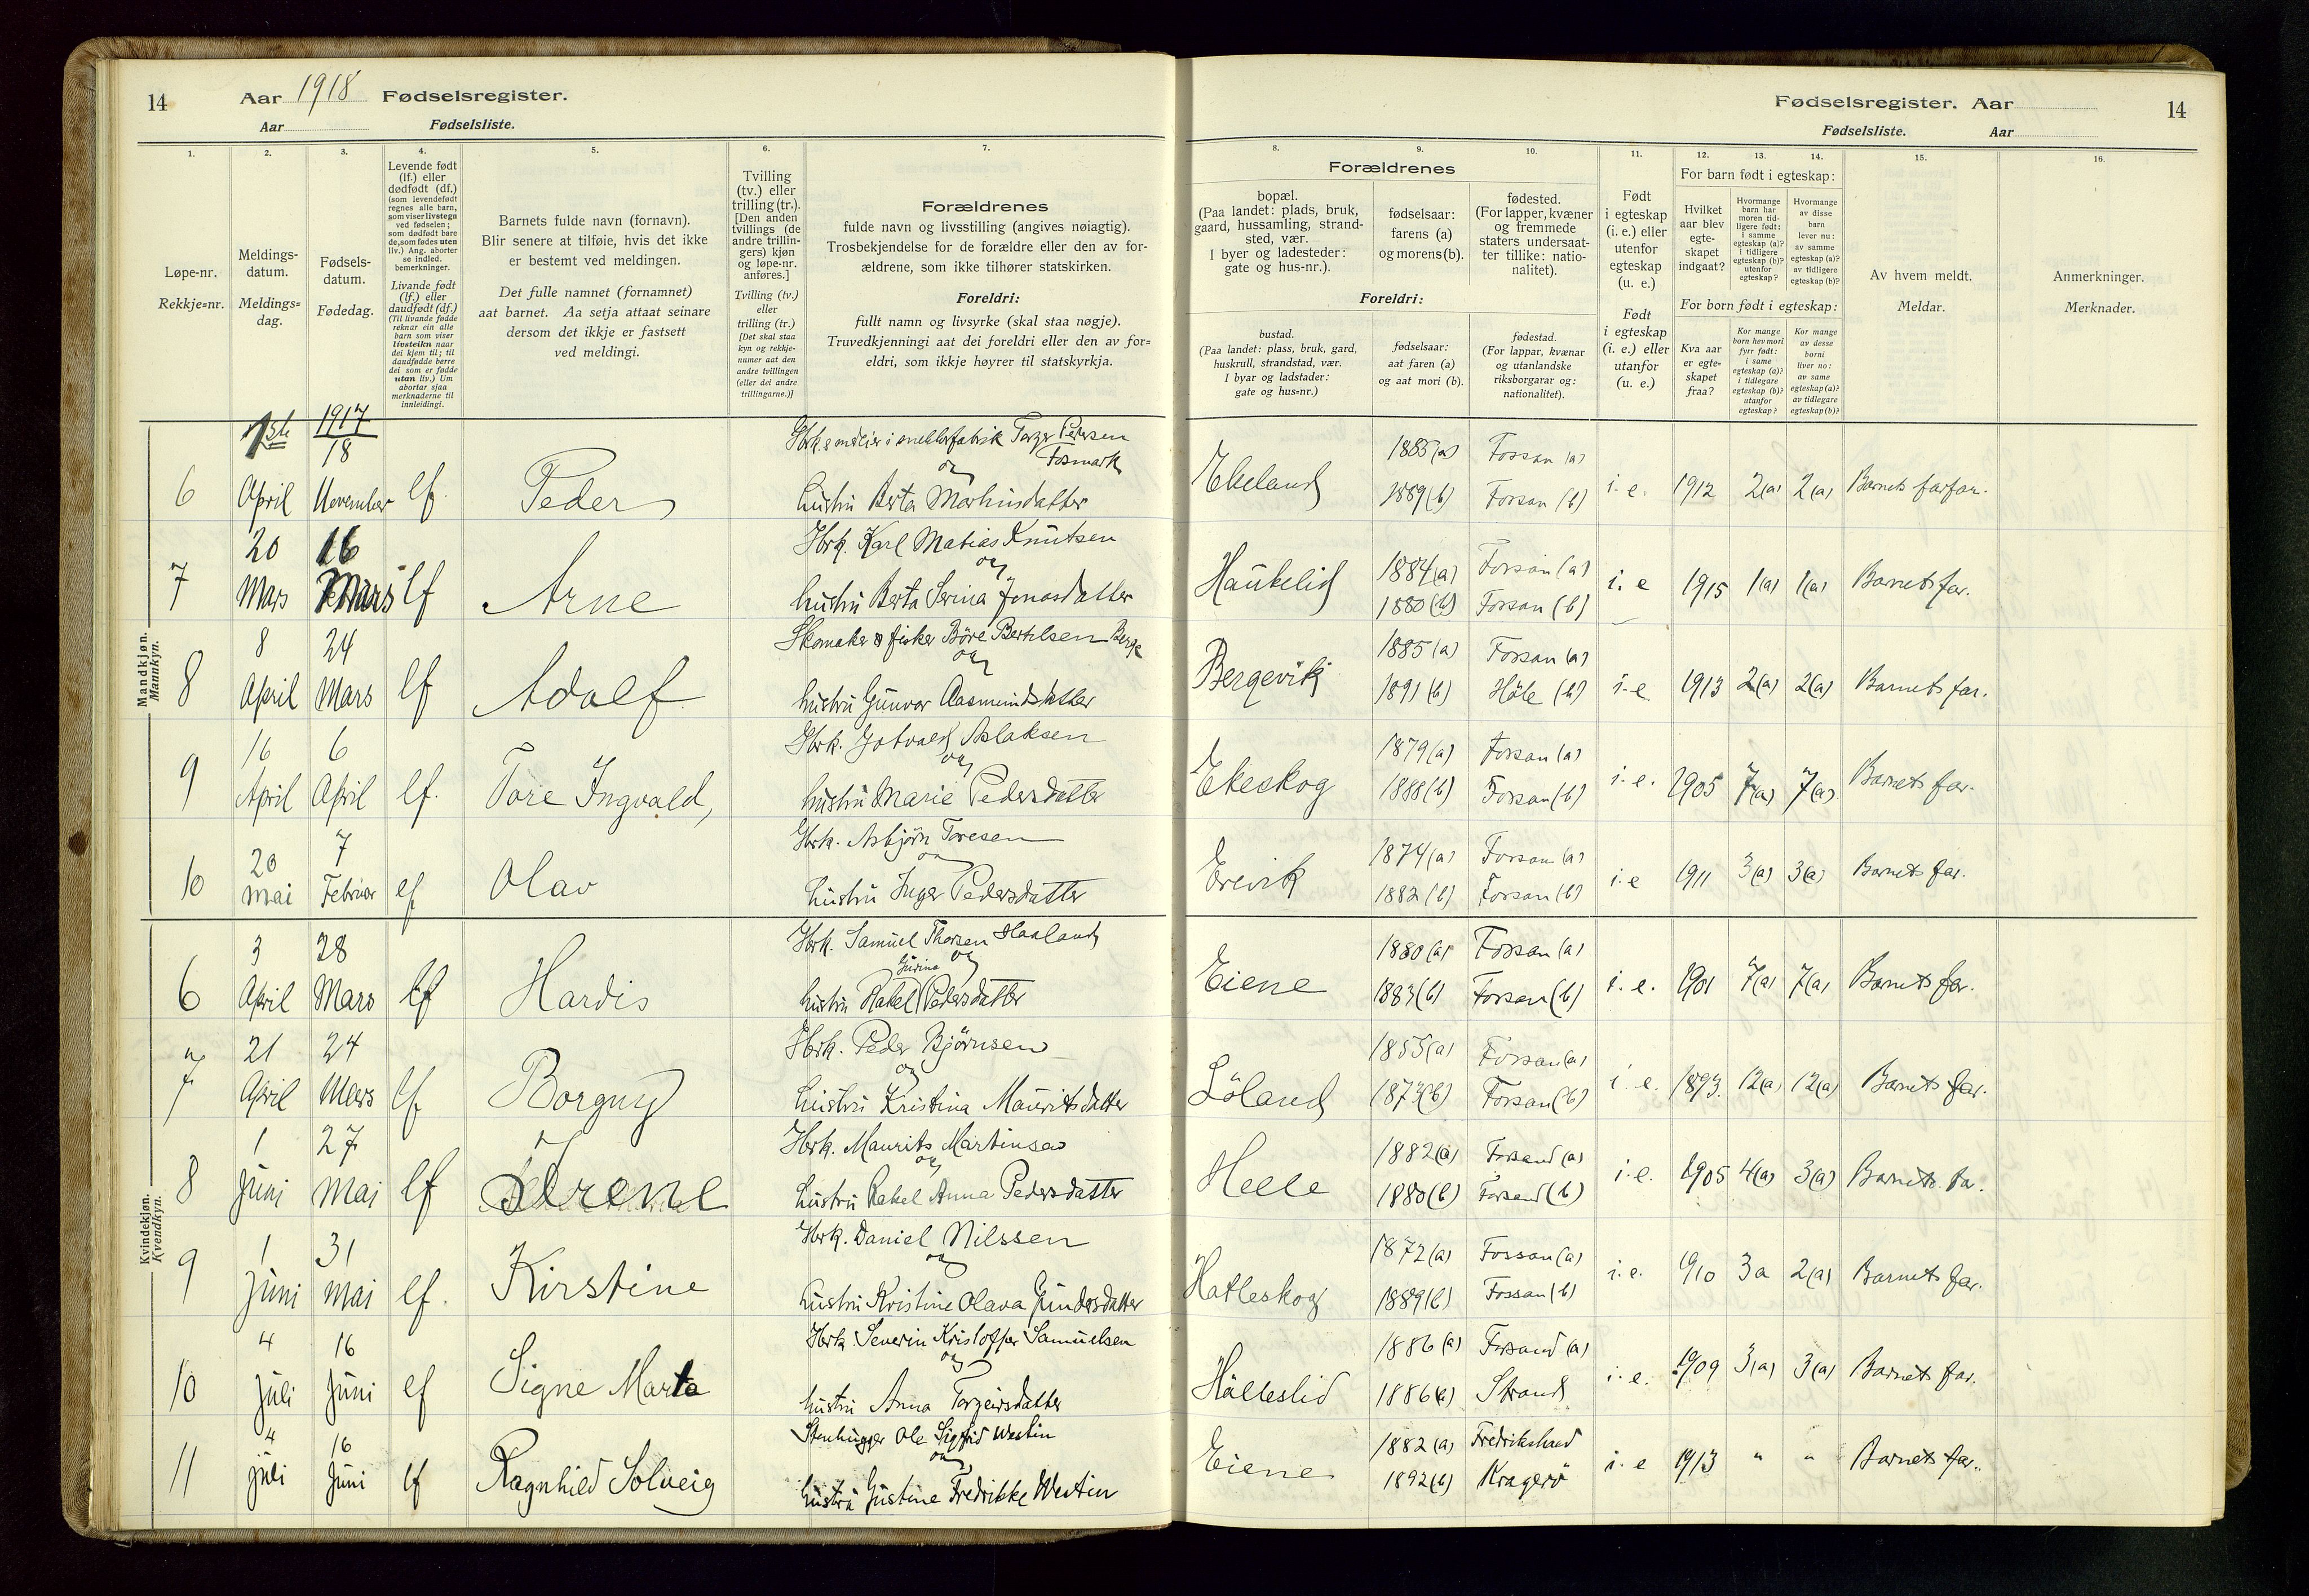 14
Aar 1918 Fødselsregister.
Aar Fødselsliste.
1.
2.
3.
4.
5.
6.
7.
Løpe-nr.
Rekkje=nr.
Meldings-
datum.
Meldings=
dag.
Fødsels-
datum.
Fødedag.
Levende født
(lf.) eller
dødfødt (df.)
(som levendefødt
regnes alle barn,
som viser livstegn
ved fødselen;
som dødfødt bare
de, som fødes uten
liv.) Ang. aborter
se indled.
bemerkninger.
Livande født
(lf.) eller
daudfødt (df.)
(Til livande fødde
reknar ein alle
barn som viser
livsteikn naar
dei kjem til; til
daudfødde berre
dei som er fødde
utan liv.) Um
abortar sjaa
merknaderne til
innleidingi.
Barnets fulde navn (fornavn).
Blir senere at tilføie, hvis det ikke
er bestemt ved meldingen.
Det fulle namnet (fornamnet)
aat barnet. Aa setja attaat seinare
dersom det ikkje er fastsett
ved meldingi.
Tvilling
(tv.) eller
trilling (tr.).
[Den anden
tvillings (de
andre trillin-
gers) kjøn
og løpe-nr.
anføres.]
Tvilling (tv.)
eller
trilling (tr.)
[Det skal staa
kyn og rekkje-
numer aat den
andre tvillingen
(eller dei andre
trillingarne.)]
Forældrenes
fulde navn og livsstilling (angives nøiagtig).
Trosbekjendelse for de forældre eller den av for-
ældrene, som ikke tilhører statskirken.
Foreldri:
fullt namn og livsyrke (skal staa nøgje).
Truvedkjenningi aat dei foreldri eller den av for=
eldri, som ikkje høyrer til statskyrkja.
Mandkjøn.
Mannkyn.
1917
18
6 April November lf. Peder
Torger Pedersen
Fosmark
og
hustru Berta Marhinsdatter
20 16
7 Mars Mars lf Arne
Gbrk. Karl Matias Knutsen
og
hustru Berta Serina Jonasdatter
8 24
8 April Mars lf Adolf
Skomaker og fisker Böre Bertelsen Berge
og
hustru Gunvor Aasmundsdatter
16 6
9 April April lf. Tore Ingvald,
Gbrk. Gotvald Aslaksen
og
hustru Marie Pedersdatter
20 7
10 Mai Februar lf Olav
Gbrk. Asbjörn Toresen
og
hustru Inger Pedersdatter
Kvindekjøn.
Kvendkyn.
3 28
6 April Mars lf Hardis
Gbrk. Samuel Thorsen Haaland
og
Gurina
hustru Rakel Pedersdatter
21 24
7 April Mars lf Borguy
Gbrk. Peder Bjørnsen
og
hustru Kristina Mauritsdatter
1 27
8 Juni Mai lf Irene
Gbrk. Maurits Martinsen
og
hustru Rakel Anna Pedersdatter
1 31
9 Juni Mai lf. Kirstine
Gbrk. Daniel Nilssen
og
hustru Kristine Olava Gundersdatter
4 16
10 Juli Juni lf Signe Marta
Gbrk. Severin Kristoffer Samuelsen
og
hustru Anna Torgeirsdatter
4 16
11 Juli Juni lf Ragnhild Solveig
Stenhugger Ole Sigfrid Westin
og
hustru Justine Fredrikke Westin
Fødselsregister. Aar
Fødselsliste. Aar
14
8.
9.
10.
11.
12.
13.
14.
15.
16.
Forældrenes
bopæl.
(Paa landet: plads, bruk,
gaard, hussamling, strand-
sted, vær.
I byer og ladesteder:
gate og hus-nr.).
fødselsaar:
farens (a)
og morens (b).
fødested.
(For lapper, kvæner
og fremmede
staters undersaat-
ter tillike: natio-
nalitet).
Foreldri:
bustad.
(Paa landet: plass, bruk, gard,
huskrull, strandstad, vær.
I byar og ladstader:
gate og hus=nr.)
fødselsaar:
aat faren (a)
og aat mori (b).
fødestad.
(For lappar, kvænar
og utanlandske
riksborgarar og:
nationalitet).
Født
i egteskap
(i. e.) eller
utenfor
egteskap
(u. e.)
Født
i egteskap
(i. e.) eller
utanfor
(u. e.)
For barn født i egteskap:
Hvilket
aar blev
egte-
skapet
indgaat?
Hvormange
barn har
moren tid-
ligere født:
i samme
egteskap (a)?
i tidligere
egteskap (b)?
utenfor
egteskap?
Hvormange
av disse
barn
lever nu:
av samme
egteskap (a)?
av tidligere
egteskap (b)?
For born født i egteskap:
Kva aar
er egte-
skapet
fraa?
Kor mange
born hev mori
fyrr født:
i same
egteskap (a)?
i tidlegare
egteskap (b)?
utanfor
egteskap?
Kor mange
av desse
borni
liver no:
av same
egteskap (a)?
av tidlegare
egteskap (b)?
Av hvem meldt.
Meldar.
Anmerkninger.
Merknader.
Ekeland 1885 (a) Fossan (a)
1889 (b) Forsan (b) i. e. 1912 2(a) 2(a) Barnets farfar.
Haukelid 1884 (a) Forsan (a)
1880 (b) Forsan (b) i. e 1915 1(a) 1(a) Barnets far.
Bergevik 1885 (a) Forsan (a)
1891 (b) Höle (b) i. e 1913 2(a) 2(a) Barnets far.
Ekeskog 1879 (a) Forsan (a)
1888 (b) Forsan (b) i. e. 1905 7(a) 7(a) Barnets far.
Erevik 1874 (a) Forsan (a)
1882 (b) Forsan (b) i. e 1911 3(a) 3(a) Barnets far.
Eiene 1880 (a) Forsan (a)
1883 (b) Forsan (b) i. e. 1901 7(a) 7(a) Barnets far.
Löland (a) Forsan (a)
1873 (b) Forsan (b) i. e. 1893. 12(a) 12(a) Barnets far.
Helle 1882 (a) Forsand (a)
1880 (b) Forsand (b) i. e. 1905 4(a) 3(a) Barnets far.
Hatleskog 1872 (a) Fossan (a)
1889 (b) Fossan (b) i. e. 1910 3 a 2(a) Barnets far.
Hålleslid 1886 (a) Forsand (a)
1886 (b) Strand i. e. 1909 3(a) 3(a) Barnets far.
Eiene 1882 (a) Fredrikstad
1892 (b) Kragerö i. e 1913 " " Barnets far.